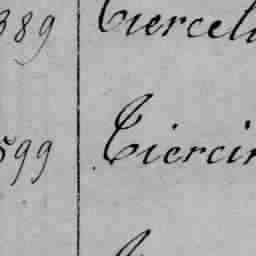 389 Tiercel
599 Tiercin